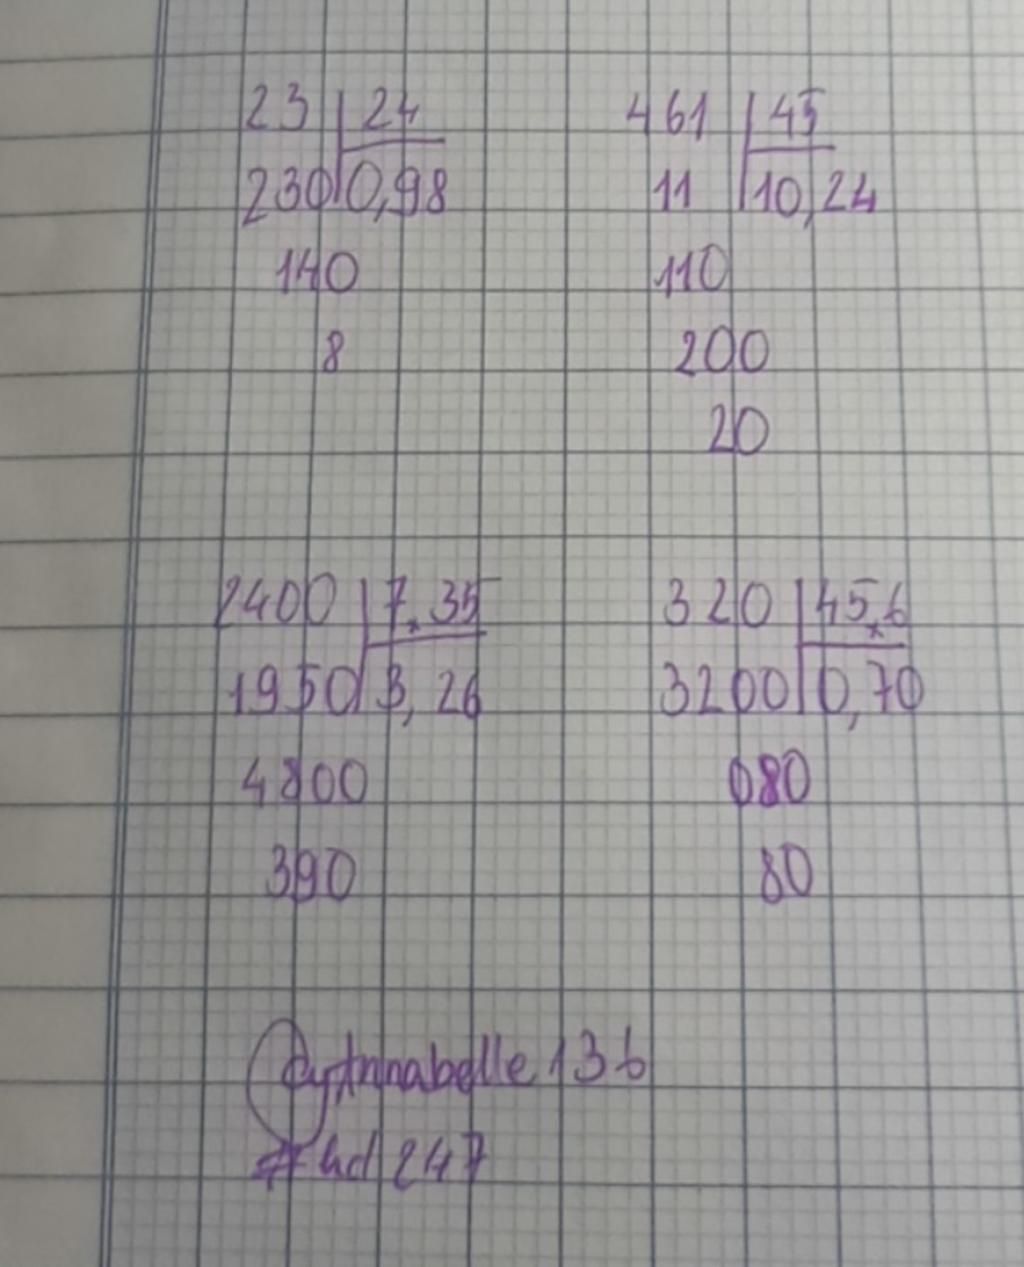 23 | 24
230 | 0,98
140
8
461 | 45
11 | 10,24
110
200
20
2400 | 7,35
1950 | 3,26
4800
390
320 | 45,6
3200 | 0,70
080
80
byAnnabelle136
#hd247